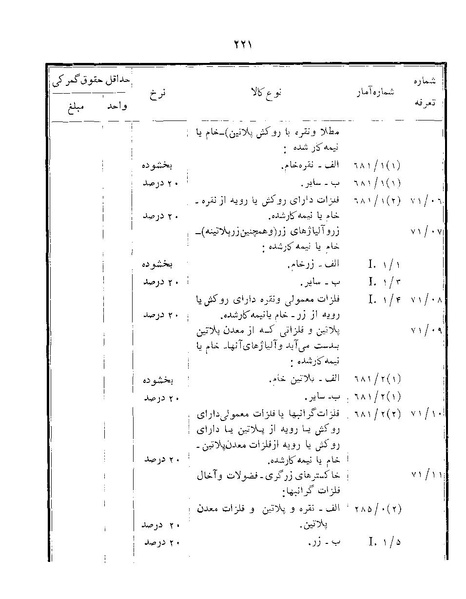 ۲۲۱
شماره تعرفه شماره آمار نوع کالا نرخ حداقل حقوق گمرکی
واحد مبلغ
مطلا و نقره با روکش پلاتین)ـ خام یا
نیمه کار شده :
۶۸۱/۱(۱) الف ـ نقره خام. بخشوده
۶۸۱/۱(۱) ب ـ سایر. ۲۰ درصد
۷۱/۰۶ ۶۸۱/۱(۲) فلزات دارای روکش یا رویه از نقره ـ
خام یا نیمه کار شده. ۲۰ درصد
۷۱/۰۷ زر و آلیاژهای زر (و همچنین زر پلاتینه) ـ
خام یا نیمه کار شده :
I. ۱/۱ الف ـ زر خام. بخشوده
I. ۱/۳ ب ـ سایر. ۲۰ درصد
۷۱/۰۸ I. ۱/۴ فلزات معمولی و نقره دارای روکش یا
رویه از زر ـ خام یا نیمه کار شده. ۲۰ درصد
۷۱/۰۹ پلاتین و فلزاتی که از معدن پلاتین
بدست می‌آید و آلیاژهای آنها ـ خام یا
نیمه کار شده :
۶۸۱/۲(۱) الف ـ پلاتین خام. بخشوده
۶۸۱/۲(۱) ب ـ سایر. ۲۰ درصد
۷۱/۱۰ ۶۸۱/۲(۲) فلزات گرانبها یا فلزات معمولی دارای
روکش یا رویه از پلاتین یا دارای
روکش یا رویه از فلزات معدن پلاتین ـ
خام یا نیمه کار شده. ۲۰ درصد
۷۱/۱۱ خاکسترهای زرگری ـ فضولات و آخال
فلزات گرانبها:
۲۸۵/۰(۲) الف ـ نقره و پلاتین و فلزات معدن
پلاتین. ۲۰ درصد
I. ۱/۵ ب ـ زر. ۲۰ درصد